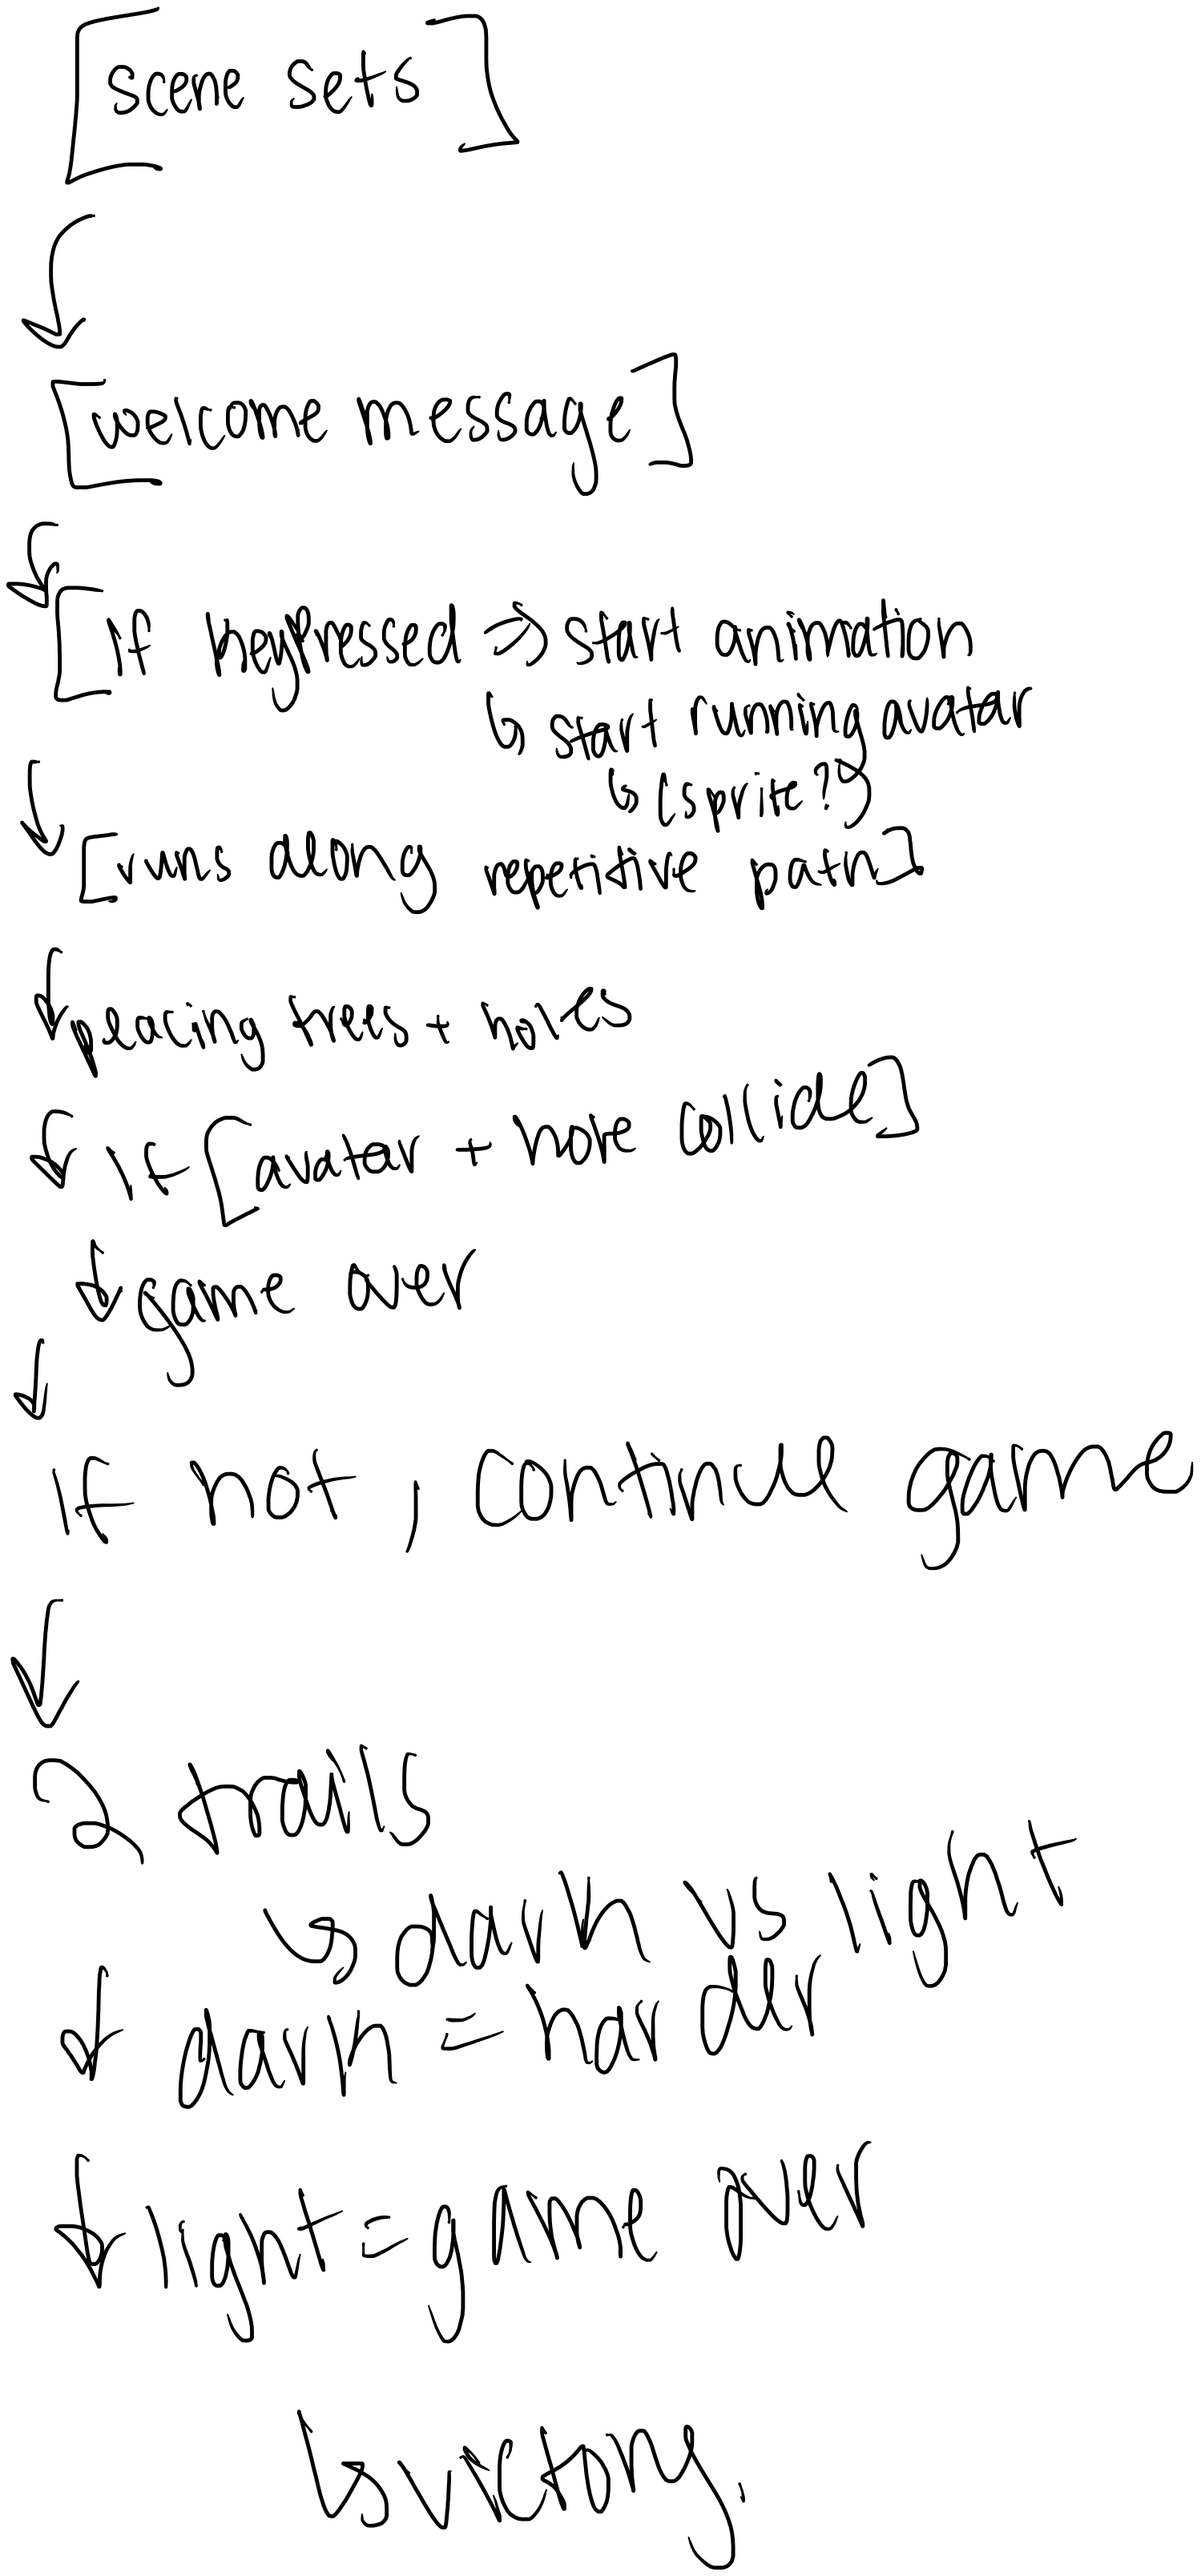 [scene sets]
[welcome message]
[If keyPressed => start animation
↳ start running avatar
↳ (sprite?)
[runs along repetitive path]
placing trees + holes
If [avatar + hole collide]
game over
If not, continue game
2 trails
↳ dark vs light
dark = harder
light = game over
↳ victory.